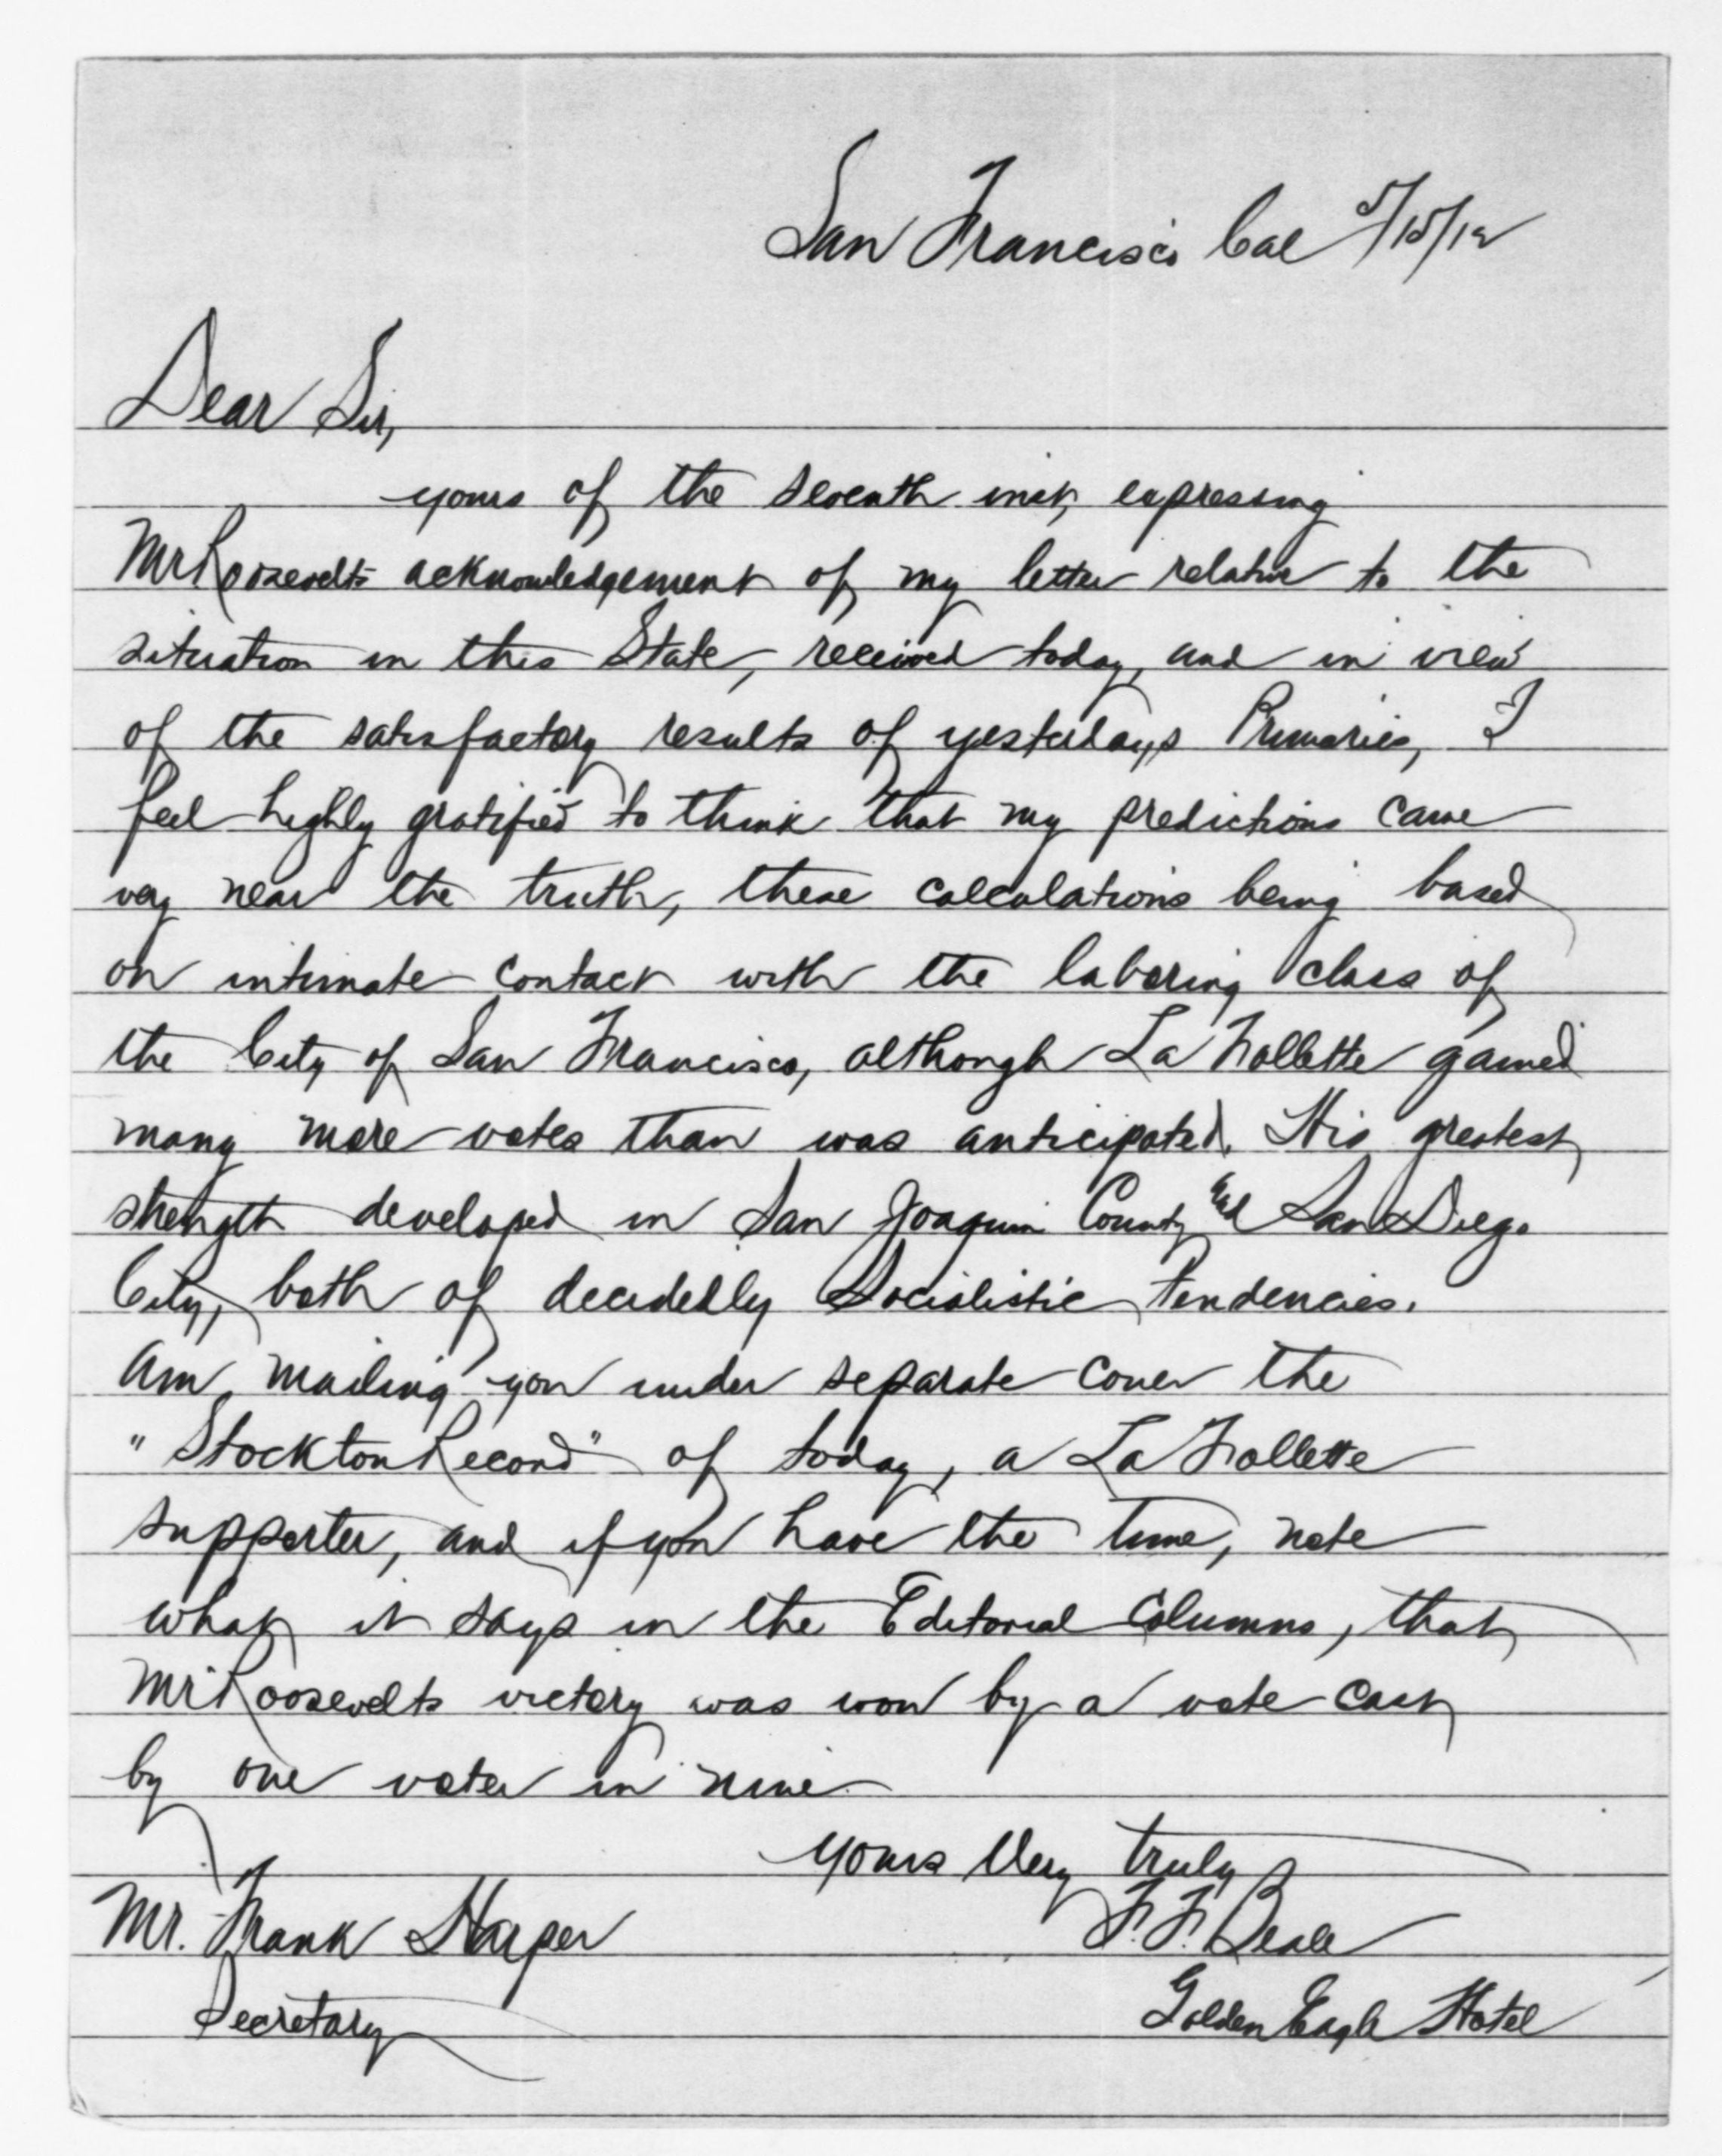 San Francisco Cal 5/15/12
Dear Sir,
yours of the seventh inst, expressing
Mr Roosevelts acknowledgement of my letter relative to the
situation in this State, received today, and in view
of the satisfactory results of yesterdays Primaries, I
feel highly gratified to think that my predictions came
very near the truth, these calculations being based
on intimate contact with the laboring class of
the City of San Francisco, although La Follette gained
many more votes than was anticipated. His greatest
strength developed in San Joaquin County and San Diego
City, both of decidedly Socialistic tendencies.
Am mailing you under separate cover the
"Stockton Record" of today, a La Follette
supporter, and if you have the time, note
what it says in the Editorial Columns, that
Mr Roosevelts victory was won by a vote cast
by one voter in nine
Yours Very truly
Mr. Frank Harper F. F. Beale
Secretary Golden Eagle Hotel